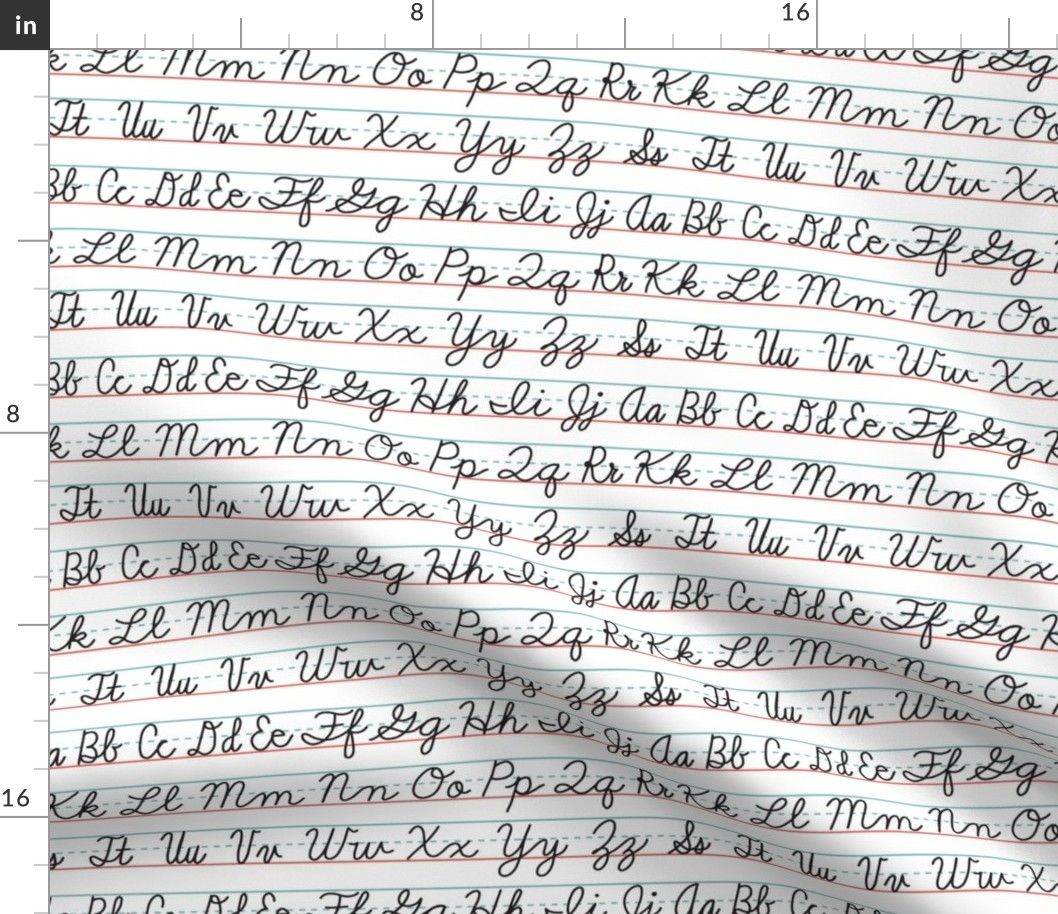 in 8 16
Ff Gg
Ll Mm Nn Oo Pp Qq Rr Kk Ll Mm Nn Oo
Tt Uu Vv Ww Xx Yy Zz Ss Tt Uu Vv Ww Xx
Bb Cc Dd Ee Ff Gg Hh Ii Jj Aa Bb Cc Dd Ee Ff Gg
Ll Mm Nn Oo Pp Qq Rr Kk Ll Mm Nn Oo
Tt Uu Vv Ww Xx Yy Zz Ss Tt Uu Vv Ww Xx
Bb Cc Dd Ee Ff Gg Hh Ii Jj Aa Bb Cc Dd Ee Ff Gg
8
k Ll Mm Nn Oo Pp Qq Rr Kk Ll Mm Nn Oo
Tt Uu Vv Ww Xx Yy Zz Ss Tt Uu Vv Ww Xx
Bb Cc Dd Ee Ff Gg Hh Ii Jj Aa Bb Cc Dd Ee Ff Gg
Kk Ll Mm Nn Oo Pp Qq Rr Kk Ll Mm Nn Oo
Tt Uu Vv Ww Xx Yy Zz Ss Tt Uu Vv Ww
a Bb Cc Dd Ee Ff Gg Hh Ii Jj Aa Bb Cc Dd Ee Ff Gg
16
Kk Ll Mm Nn Oo Pp Qq Rr Kk Ll Mm Nn Oo
s Tt Uu Vv Ww Xx Yy Zz Ss Tt Uu Vv Ww X
Bb Cc Dd Ee Ff Gg Hh Ii Jj Aa Bb Cc